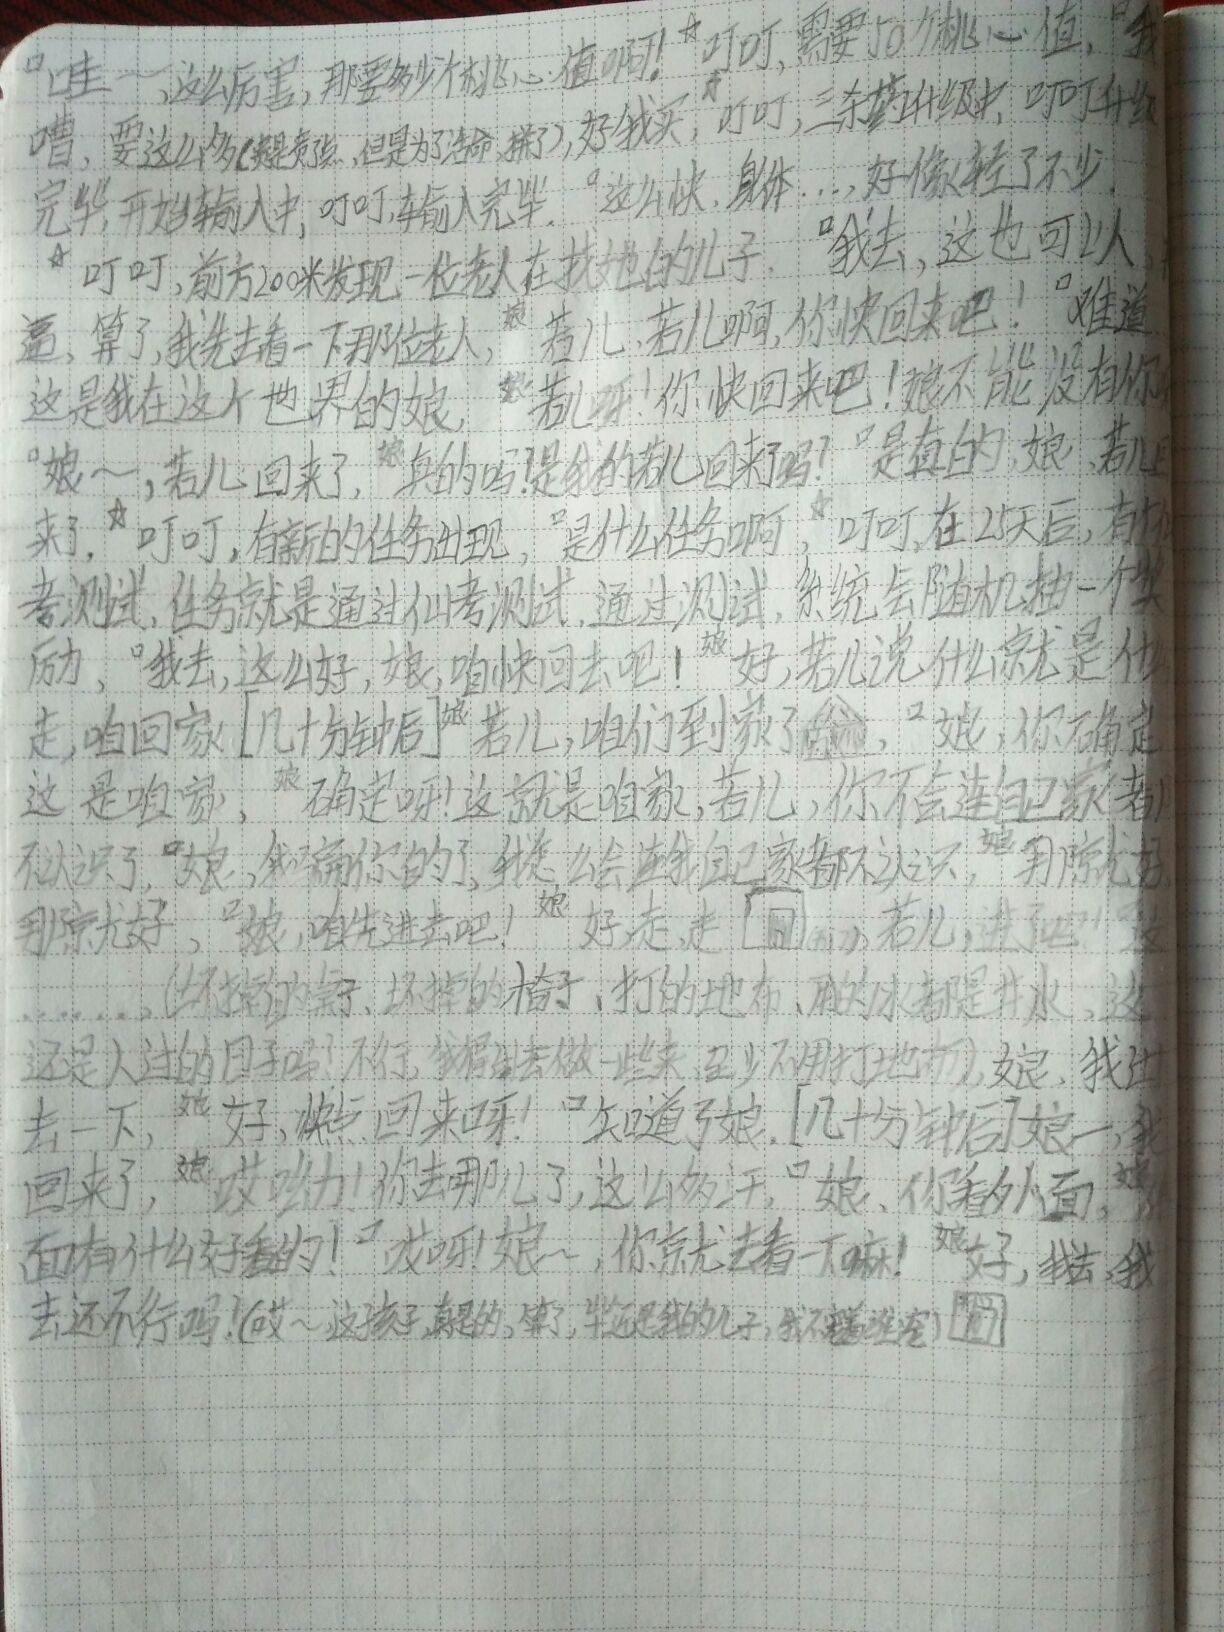 哇～,这么厉害,那要多少个桃心值啊! ☆叮叮,需要50个桃心值, 我
嘈,要这么多(贵是贵点,但是为了活命,拼了),好我买, ☆叮叮,三杀药升级中,叮叮升级
完毕,开始输入中,叮叮,输入完毕. 这么快,身体…,好像轻了不少.
☆叮叮,前方200米发现一位老人在找她的儿子. 我去,这也可以,
算了,我先去看一下那位老人, 娘 若儿,若儿啊,你快回来吧! 难道
这是我在这个世界的娘, 娘 若儿呀!你快回来吧!娘不能没有你,
娘～,若儿回来了, 娘 真的吗?是我的若儿回来了吗? 是真的,娘,若儿回
来了, ☆叮叮,有新的任务出现, 是什么任务啊, ☆叮叮,在25天后,有
考测试,任务就是通过仙考测试,通过测试,系统会随机抽一个奖
励, 我去,这么好,娘,咱快回去吧! 娘 好,若儿说什么就是什么
走,咱回家[几十分钟后] 娘 若儿,咱们到家了, 娘,你确定
这是咱家, 娘 确定呀!这就是咱家,若儿,你不会连自己家都
不认识了, 娘,我骗你的了,我怎么会连我自己家都不认识, 娘 那就好,
那就好, 娘,咱先进去吧! 娘 好,走,走,若儿,进了吧! 这
……,(坏掉的桌子、坏掉的椅子、打的地布、用的水都是井水,这
还是人过的日子吗?不行,我得出去做一些来,至少不用打地布),娘,我出
去一下, 娘 好,快点回来呀! 知道了娘.[几十分钟后]娘～,我
回来了, 娘 哎哟!你去那儿了,这么多汗, 娘,你看外面, 娘 外
面有什么好看的! 哎呀!娘～,你就去看一下嘛! 娘 好,我去,我
去还不行吗!(哎～这孩子,真是的,算了,毕竟还是我的儿子,我不宠着谁宠)